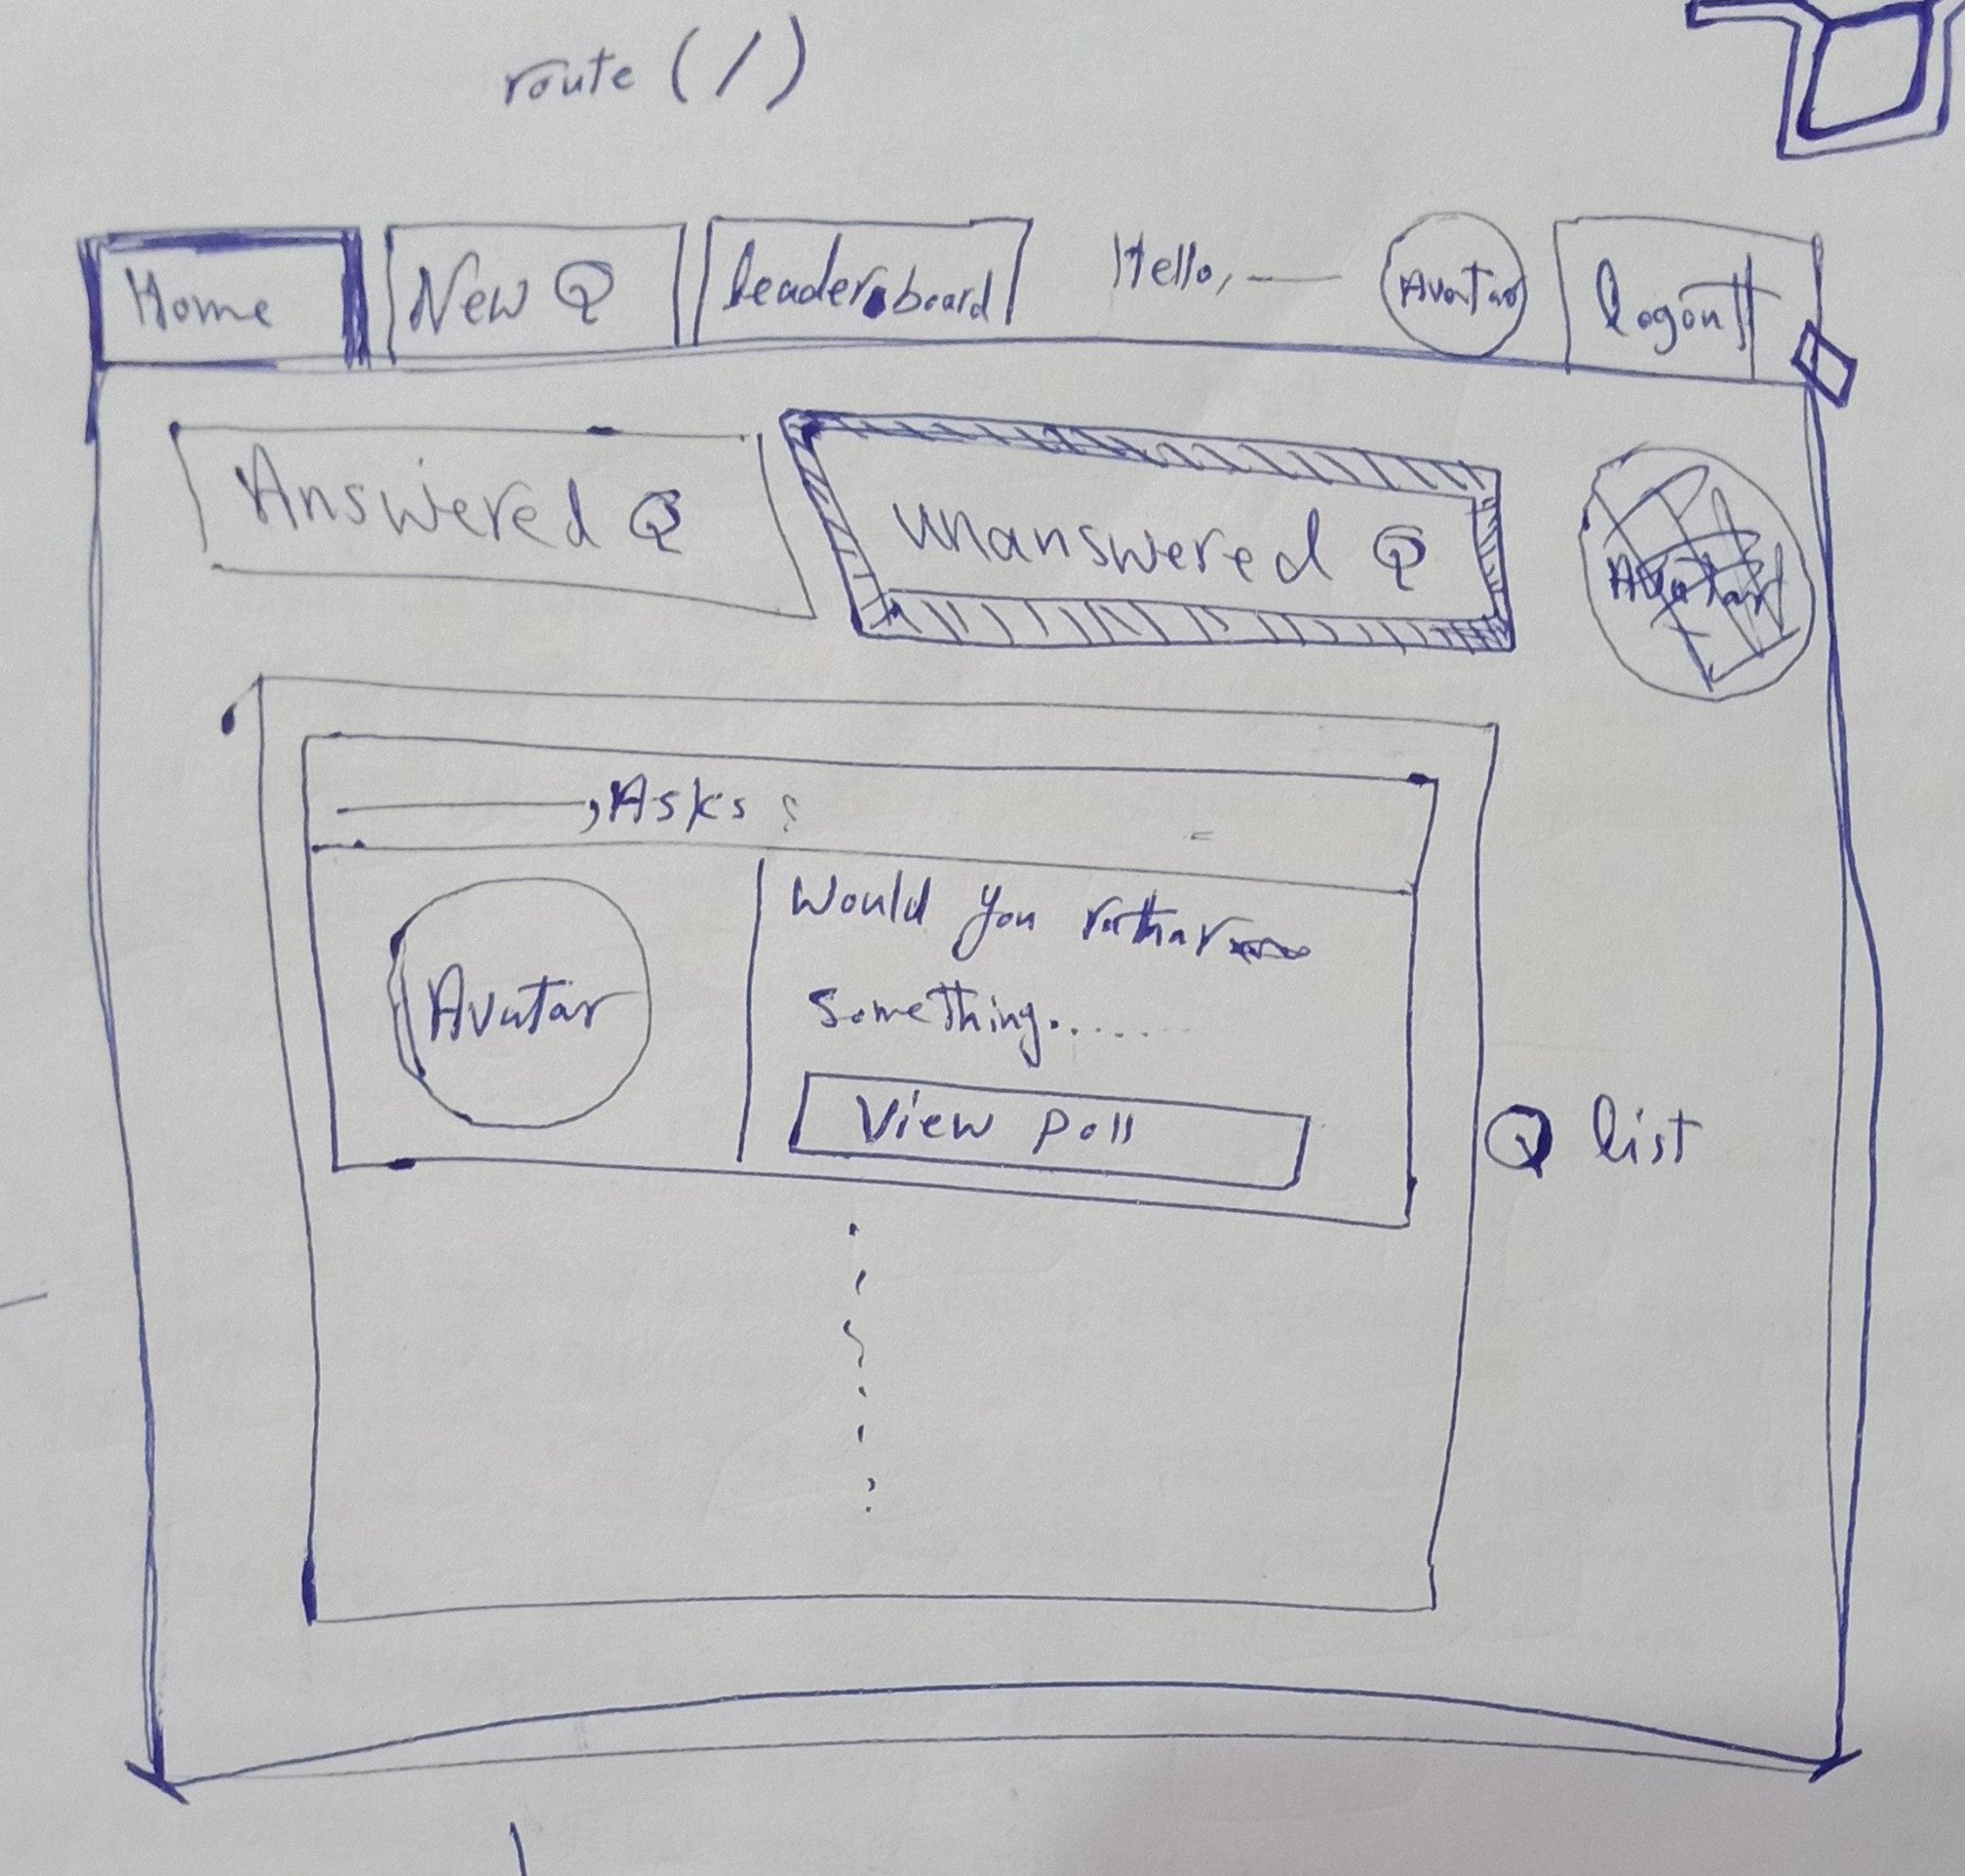 route (/)
Home New Q leaderboard Hello, Avatar logout
Answered Q unanswered Q Avatar
, Asks :
Would you rathar
Avatar something.......
View poll
Q list